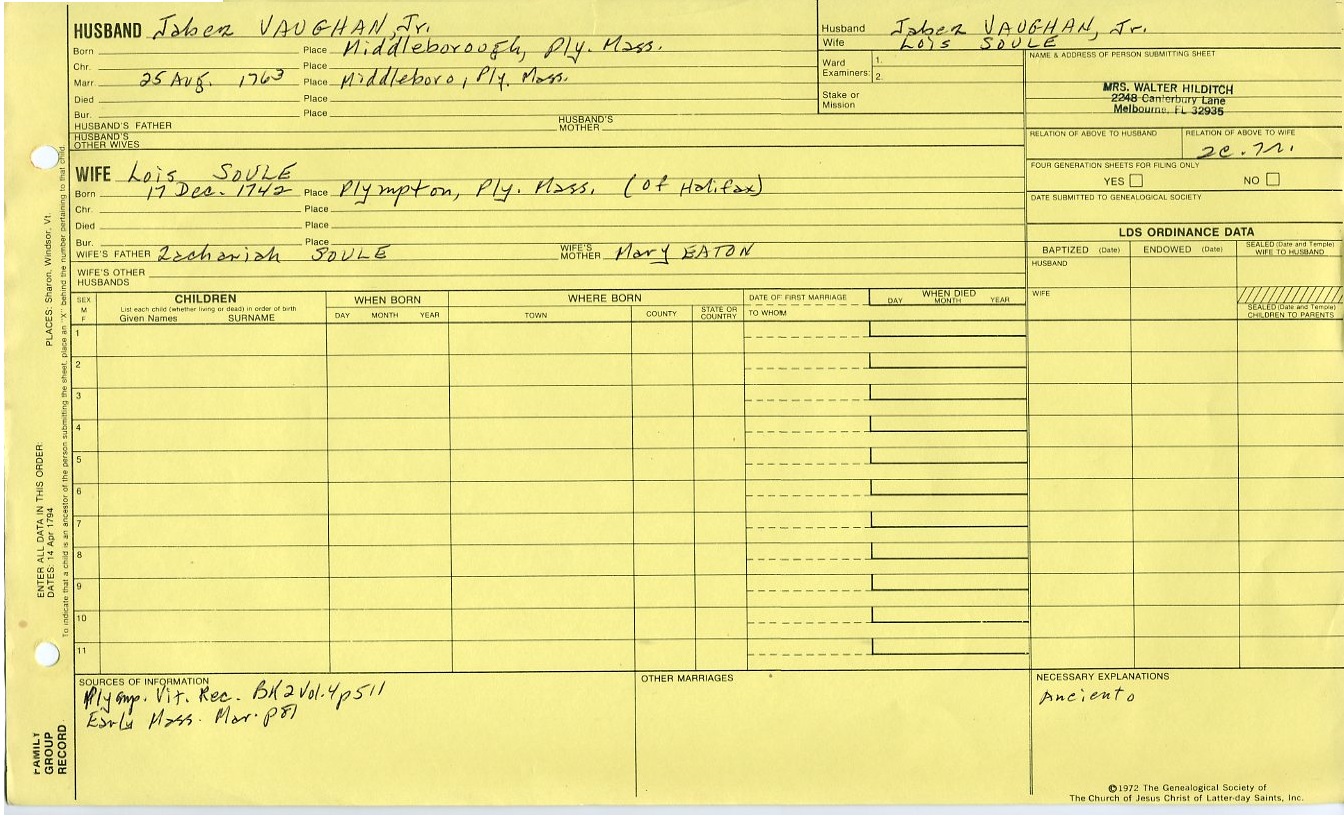 HUSBAND Jabez VAUGHAN, Jr.
Born Place Middleborough, Ply. Mass.
Chr. Place
Marr. 25 Aug. 1763 Place Middleboro, Ply. Mass.
Died Place
Bur. Place
HUSBAND'S FATHER HUSBAND'S MOTHER
HUSBAND'S OTHER WIVES
Husband Jabez VAUGHAN, Jr.
Wife Lois SOULE
Ward Examiners: 1.
2.
Stake or Mission
NAME & ADDRESS OF PERSON SUBMITTING SHEET
MRS. WALTER HILDITCH
2248 Canterbury Lane
Melbourne, FL 32935
RELATION OF ABOVE TO HUSBAND RELATION OF ABOVE TO WIFE
2c.7r.
FOUR GENERATION SHEETS FOR FILING ONLY
YES NO
DATE SUBMITTED TO GENEALOGICAL SOCIETY
WIFE Lois SOULE
Born 17 Dec. 1742 Place Plympton, Ply. Mass. (of Halifax)
Chr. Place
Died Place
Bur. Place
WIFE'S FATHER Zachariah SOULE WIFE'S MOTHER Mary EATON
WIFE'S OTHER HUSBANDS
LDS ORDINANCE DATA
BAPTIZED (Date) ENDOWED (Date) SEALED (Date and Temple) WIFE TO HUSBAND
HUSBAND
WIFE
SEALED (Date and Temple) CHILDREN TO PARENTS
SEX M F
CHILDREN
List each child (whether living or dead) in order of birth
Given Names SURNAME
WHEN BORN
DAY MONTH YEAR
WHERE BORN
TOWN COUNTY STATE OR COUNTRY
DATE OF FIRST MARRIAGE
TO WHOM
WHEN DIED
DAY MONTH YEAR
1
2
3
4
5
6
7
8
9
10
11
SOURCES OF INFORMATION
Plymp. Vit. Rec. BK 2 Vol. 4 p 511
Early Mass. Mar. p 87
OTHER MARRIAGES
NECESSARY EXPLANATIONS
Anciento
©1972 The Genealogical Society of
The Church of Jesus Christ of Latter-day Saints, Inc.
FAMILY GROUP RECORD
ENTER ALL DATA IN THIS ORDER:
DATES: 14 Apr 1794
PLACES: Sharon, Windsor, Vt.
To indicate that a child is an ancestor of the person submitting the sheet, place an "X" behind the number pertaining to that child.